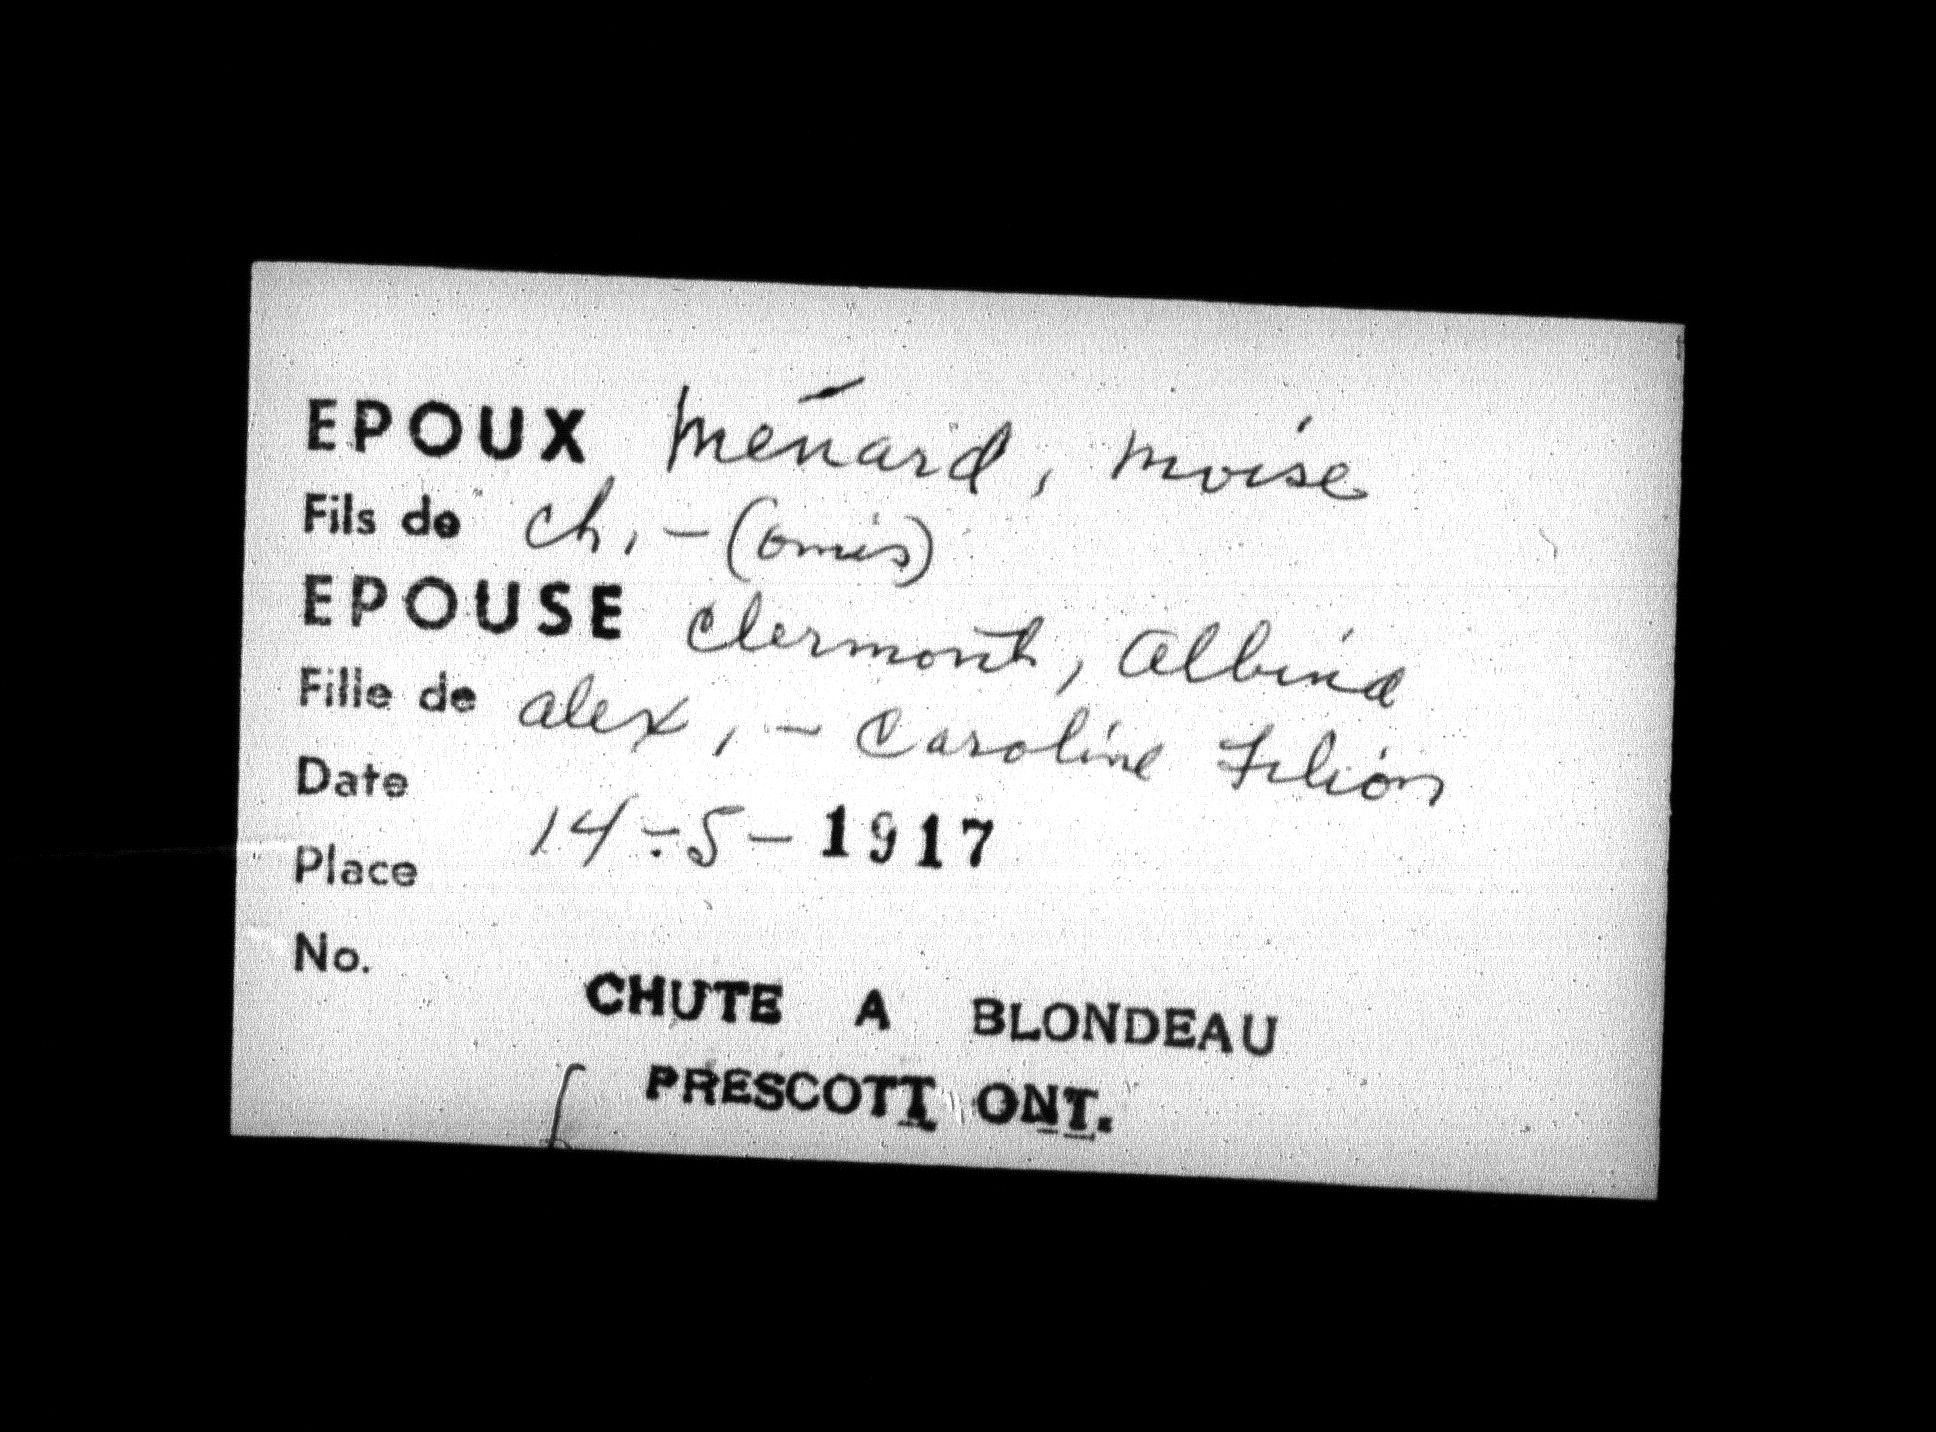 EPOUX Ménard, Moise
Fils de Ch, - (omis)
EPOUSE Clermont, Albina
Fille de Alex, - Caroline Filion
Date 14-5-1917
Place
No.
CHUTE A BLONDEAU
PRESCOTT ONT.